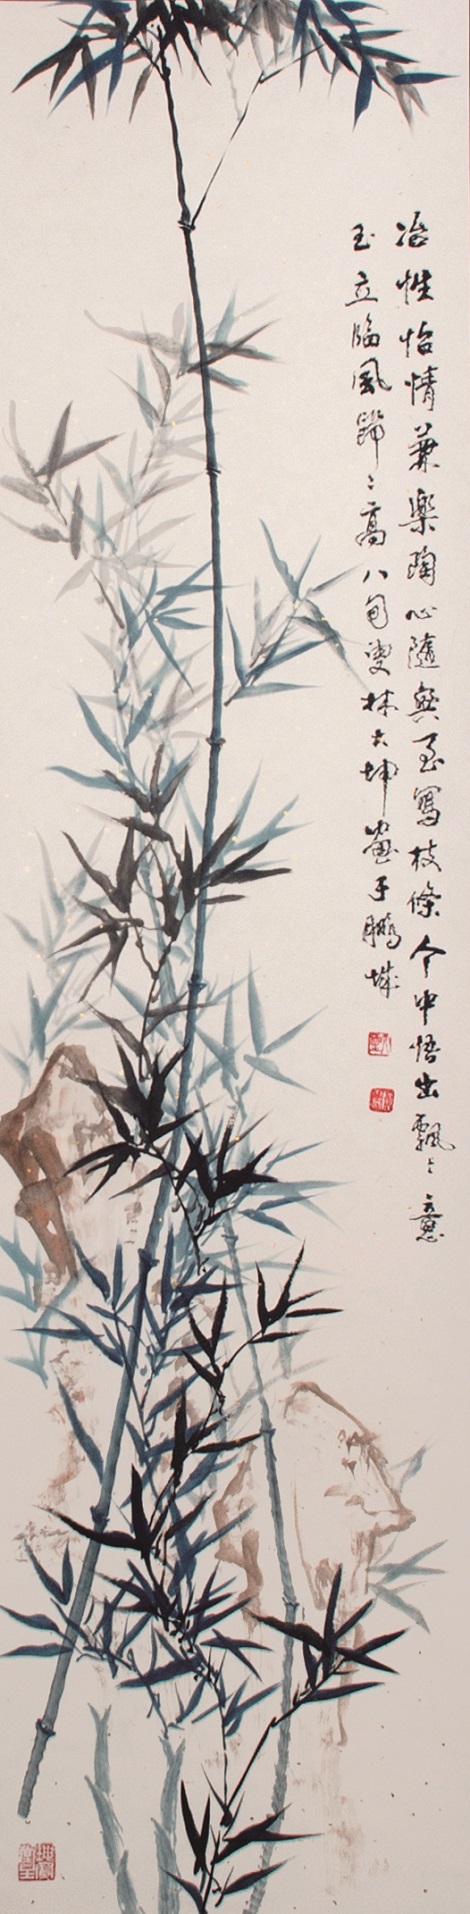 冶性怡情兼樂陶心隨興至寫枝條个中悟出飄々意
玉立臨風節々高八旬叟林大坤畫于鵬城